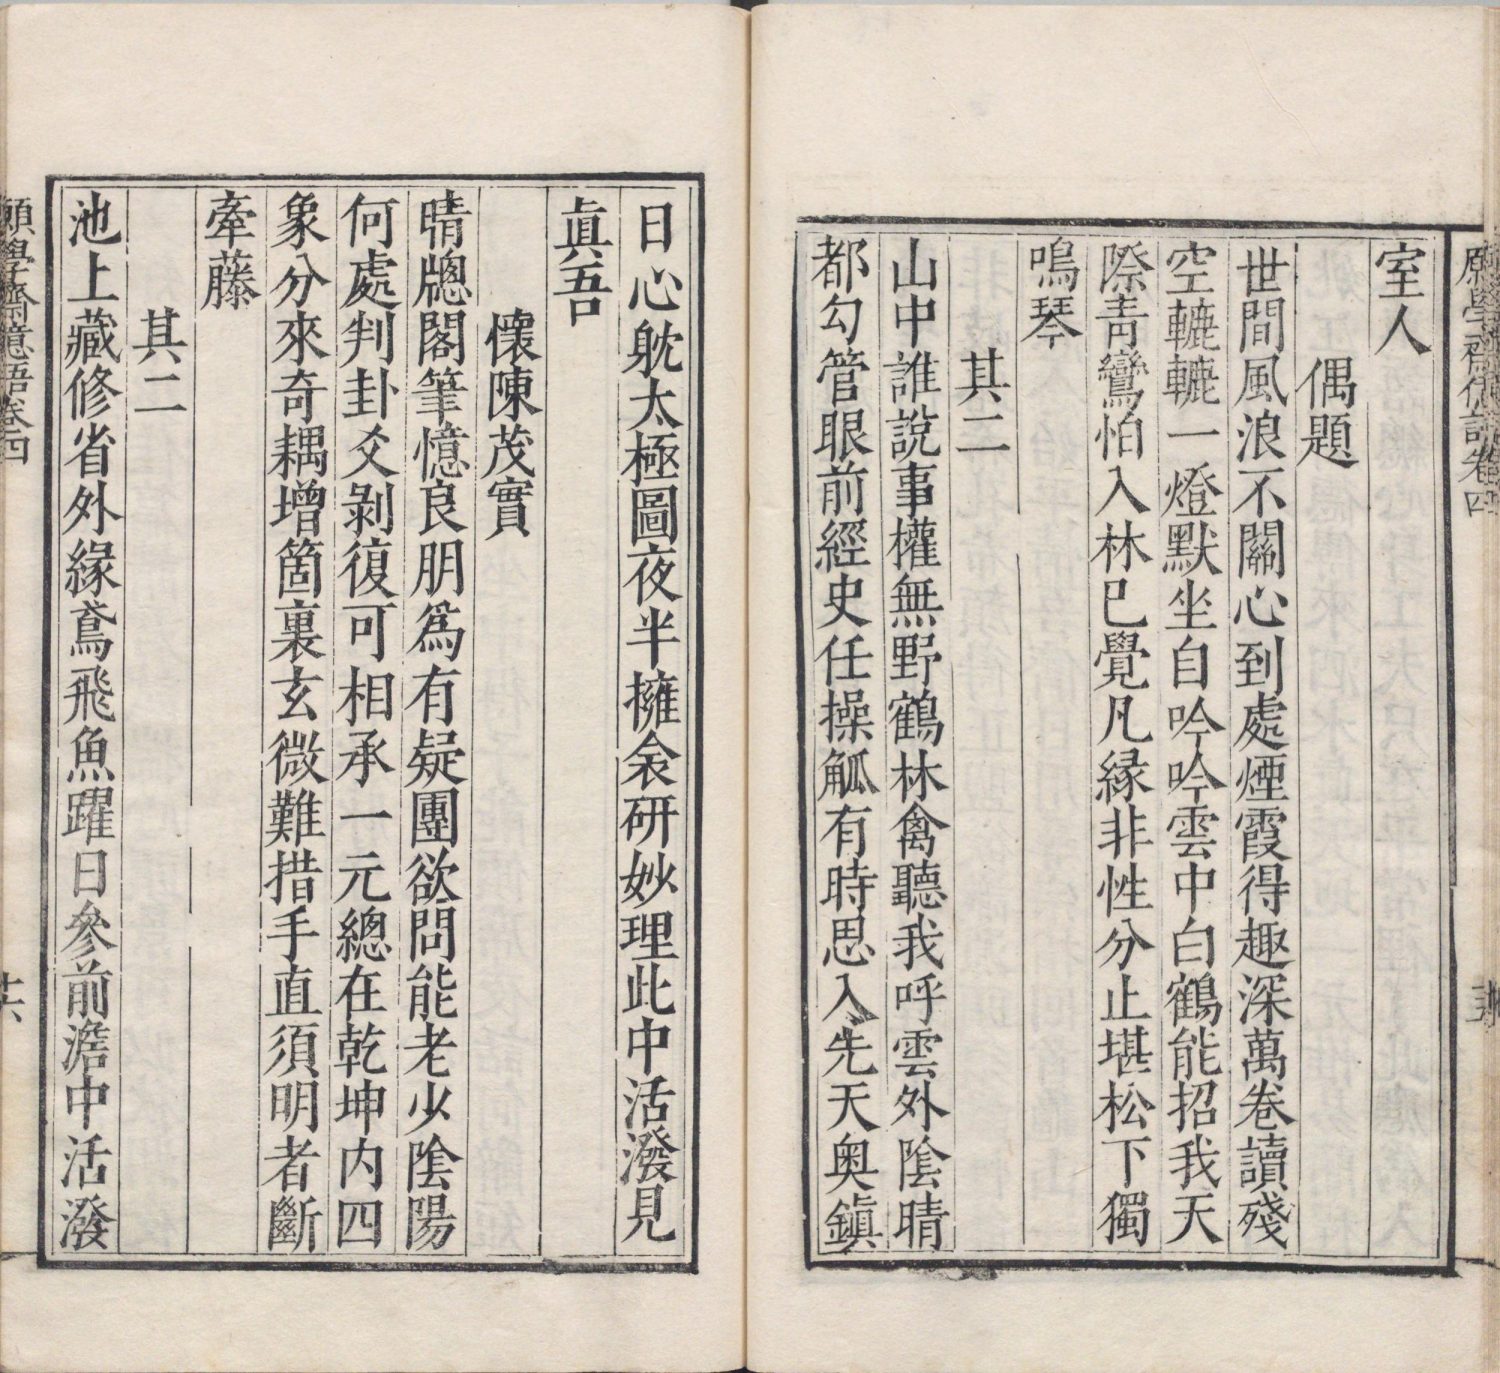 室人
偶題
世間風浪不關心到處煙霞得趣深萬卷讀殘
空轆轆一燈默坐自吟吟雲中白鶴能招我天
際青鸞怕入林已覺凡緣非性分止堪松下獨
鳴琴
其二
山中誰說事權無野鶴林禽聽我呼雲外陰晴
都勾管眼前經史任操觚有時思入先天奥鎮
日心躭太極圖夜半擁衾研妙理此中活潑見
眞吾
懷陳茂實
晴牕閣筆憶良朋爲有疑團欲問能老少陰陽
何處判卦爻剝復可相承一元總在乾坤内四
象分來奇耦增箇裏玄微難措手直須明者斷
牽藤
其二
池上藏修省外緣鳶飛魚躍日參前澹中活潑
願學齋億語卷四